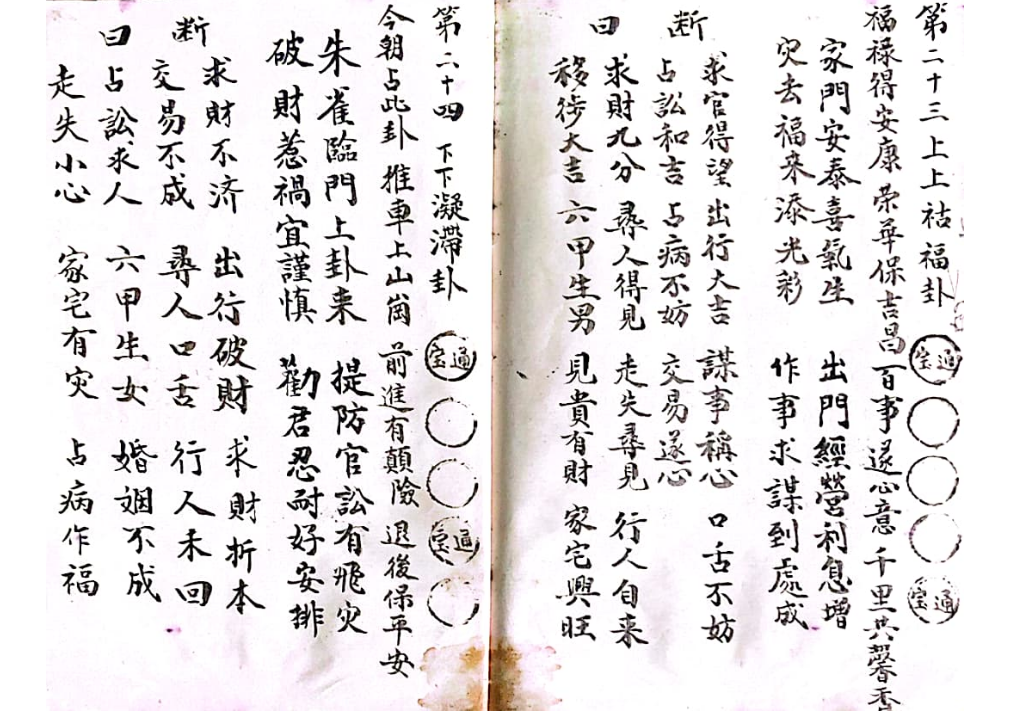 第二十三 上上 祜福卦 通宝 通宝
福禄得安康 荣華保吉昌 百事遂心意 千里共馨香
家門安泰喜氣生 出門經營利息增
灾去福来添光彩 作事求謀到處成
断曰
求官得望 出行大吉 謀事稱心 口舌不妨
占訟和吉 占病不妨 交易遂心
求財九分 尋人得見 走失尋見 行人自来
移徏大吉 六甲生男 見貴有財 家宅興旺
第二十四 下下 凝滯卦 通宝 通宝
今朝占此卦 推車上山崗 前進有顛險 退後保平安
朱雀臨門上卦来 提防官訟有飛灾
破財惹禍宜謹慎 勸君忍耐好安排
断曰
求財不济 出行破財 求財折本
交易不成 尋人口舌 行人未回
占訟求人 六甲生女 婚姻不成
走失小心 家宅有灾 占病作福